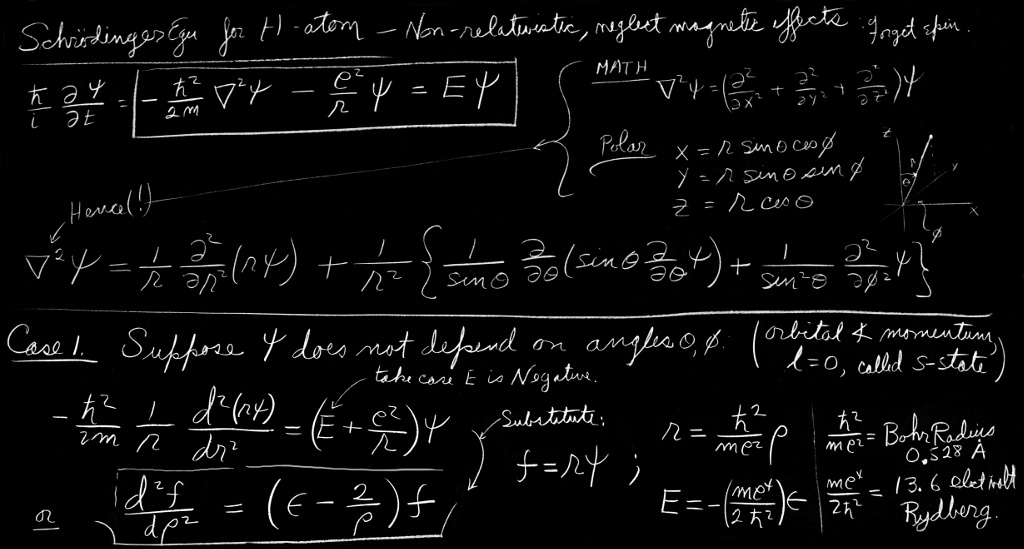 Schrödinger Equ for H-atom — Non-relativistic, neglect magnetic effects. Forget spin.
ħ/i ∂Ψ/∂t = -ħ²/2m ∇²Ψ − e²/r Ψ = EΨ
MATH ∇²Ψ = (∂²/∂x² + ∂²/∂y² + ∂²/∂z²)Ψ
Polar x = r sinθ cosφ
y = r sinθ sinφ
z = r cosθ
z r θ y x φ
Hence(!)
∇²Ψ = 1/r ∂²/∂r² (rΨ) + 1/r² { 1/sinθ ∂/∂θ (sinθ ∂/∂θ Ψ) + 1/sin²θ ∂²/∂φ² Ψ }
Case 1. Suppose Ψ does not depend on angles θ, φ. (orbital ∢ momentum,
l=0, called s-state)
take case E is Negative.
-ħ²/2m 1/r d²(rΨ)/dr² = (E + e²/r)Ψ
Substitute:
f = rΨ ;
r = ħ²/me² ρ
ħ²/me² = Bohr Radius
0.528 Å
or d²f/dρ² = (ϵ − 2/ρ) f
E = -(me⁴/2ħ²)ϵ
me⁴/2ħ² = 13.6 elect volt
Rydberg.